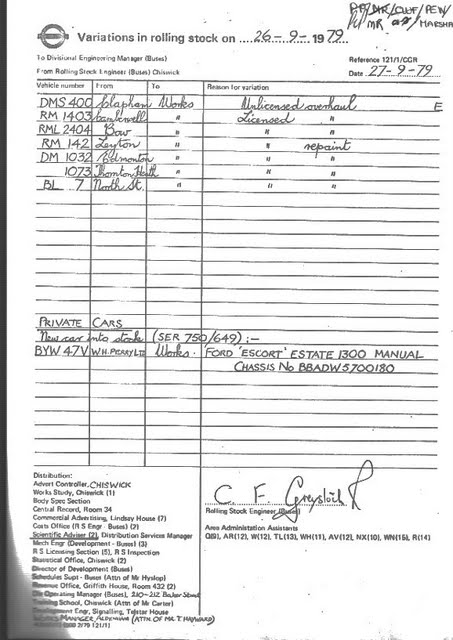 Variations in rolling stock on 26-9-1979
To Divisional Engineering Manager (Buses)
From Rolling Stock Engineer (Buses) Chiswick
Reference 121/1/CGR
Date 27-9-79
Vehicle number From To Reason for variation
DMS 400 Clapham Works Unlicensed overhaul E
RM 1403 Camberwell " Licensed "
RML 2404 Bow " " "
RM 142 Leyton " " repaint
DM 1032 Edmonton " " "
1073 Thornton Heath " " "
BL 7 North St. " " "
PRIVATE CARS
New car into stock (SER 750/649) :-
BYW 47V W.H. PERRY LTD Works. FORD 'ESCORT' ESTATE 1300 MANUAL
CHASSIS No BBADW5700180
Distribution:
Advert Controller, CHISWICK
Works Study, Chiswick (1)
Body Spec Section
Central Record, Room 34
Commercial Advertising, Lindsay House (7)
Costs Office (R S Engr - Buses) (2)
Scientific Adviser (2), Distribution Services Manager
Mech Engr (Development - Buses) (3)
R S Licensing Section (5), R S Inspection
Statistical Office, Chiswick (2)
Director of Development (Buses)
Schedules Supt - Buses (Attn of Mr Hyslop)
Revenue Office, Griffith House, Room 432 (2)
Operating Manager (Buses), 210-212 Baker Street
Training School, Chiswick (Attn of Mr Carter)
Development Engr, Signalling, Telstar House
MANAGER, ALDENHAM (ATTN OF MR. T. HAYWARD)
2/79 121/1
C. F. Greystock
Rolling Stock Engineer (Buses)
Area Administration Assistants
Q(9), AR(12), W(12), TL(13), WH(11), AV(12), NX(10), WN(15), R(14)